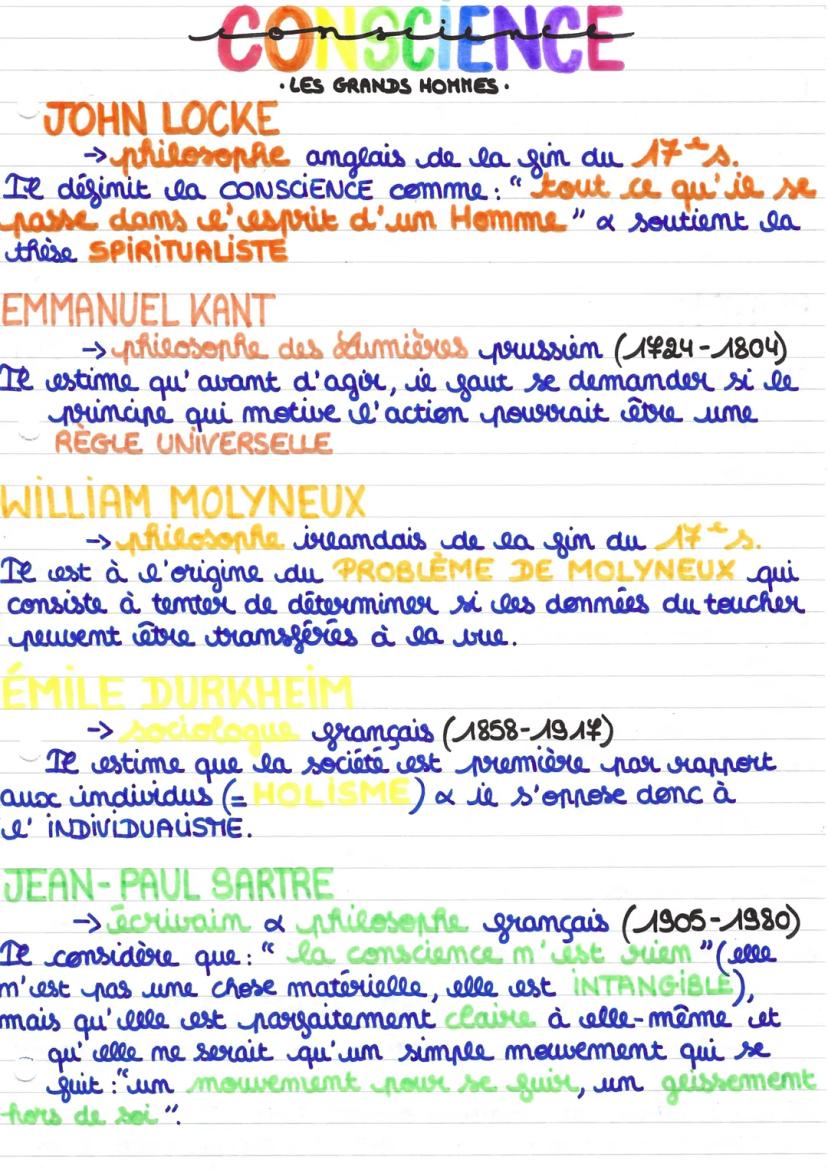 CONSCIENCE
conscience
·LES GRANDS HOMMES·
JOHN LOCKE
→ philosophe anglais de la fin du 17e s.
Il définit la CONSCIENCE comme : " tout ce qu'il se
passe dans l'esprit d'un Homme " & soutient la
thèse SPIRITUALISTE
EMMANUEL KANT
→ philosophe des Lumières prussien (1724-1804)
Il estime qu'avant d'agir, il faut se demander si le
principe qui motive l'action pourrait être une
RÈGLE UNIVERSELLE
WILLIAM MOLYNEUX
→ philosophe irlandais de la fin du 17e s.
Il est à l'origine du PROBLÈME DE MOLYNEUX qui
consiste à tenter de déterminer si les données du toucher
peuvent être transférés à la vue.
ÉMILE DURKHEIM
→ sociologue français (1858-1917)
Il estime que la société est première par rapport
aux individus (= HOLISME) & il s'oppose donc à
l'INDIVIDUALISME.
JEAN-PAUL SARTRE
→ écrivain & philosophe français (1905-1980)
Il considère que : " la conscience n'est rien " (elle
n'est pas une chose matérielle, elle est INTANGIBLE),
mais qu'elle est parfaitement claire à elle-même et
qu'elle ne serait qu'un simple mouvement qui se
fuit : "un mouvement pour se fuir, un glissement
hors de soi".